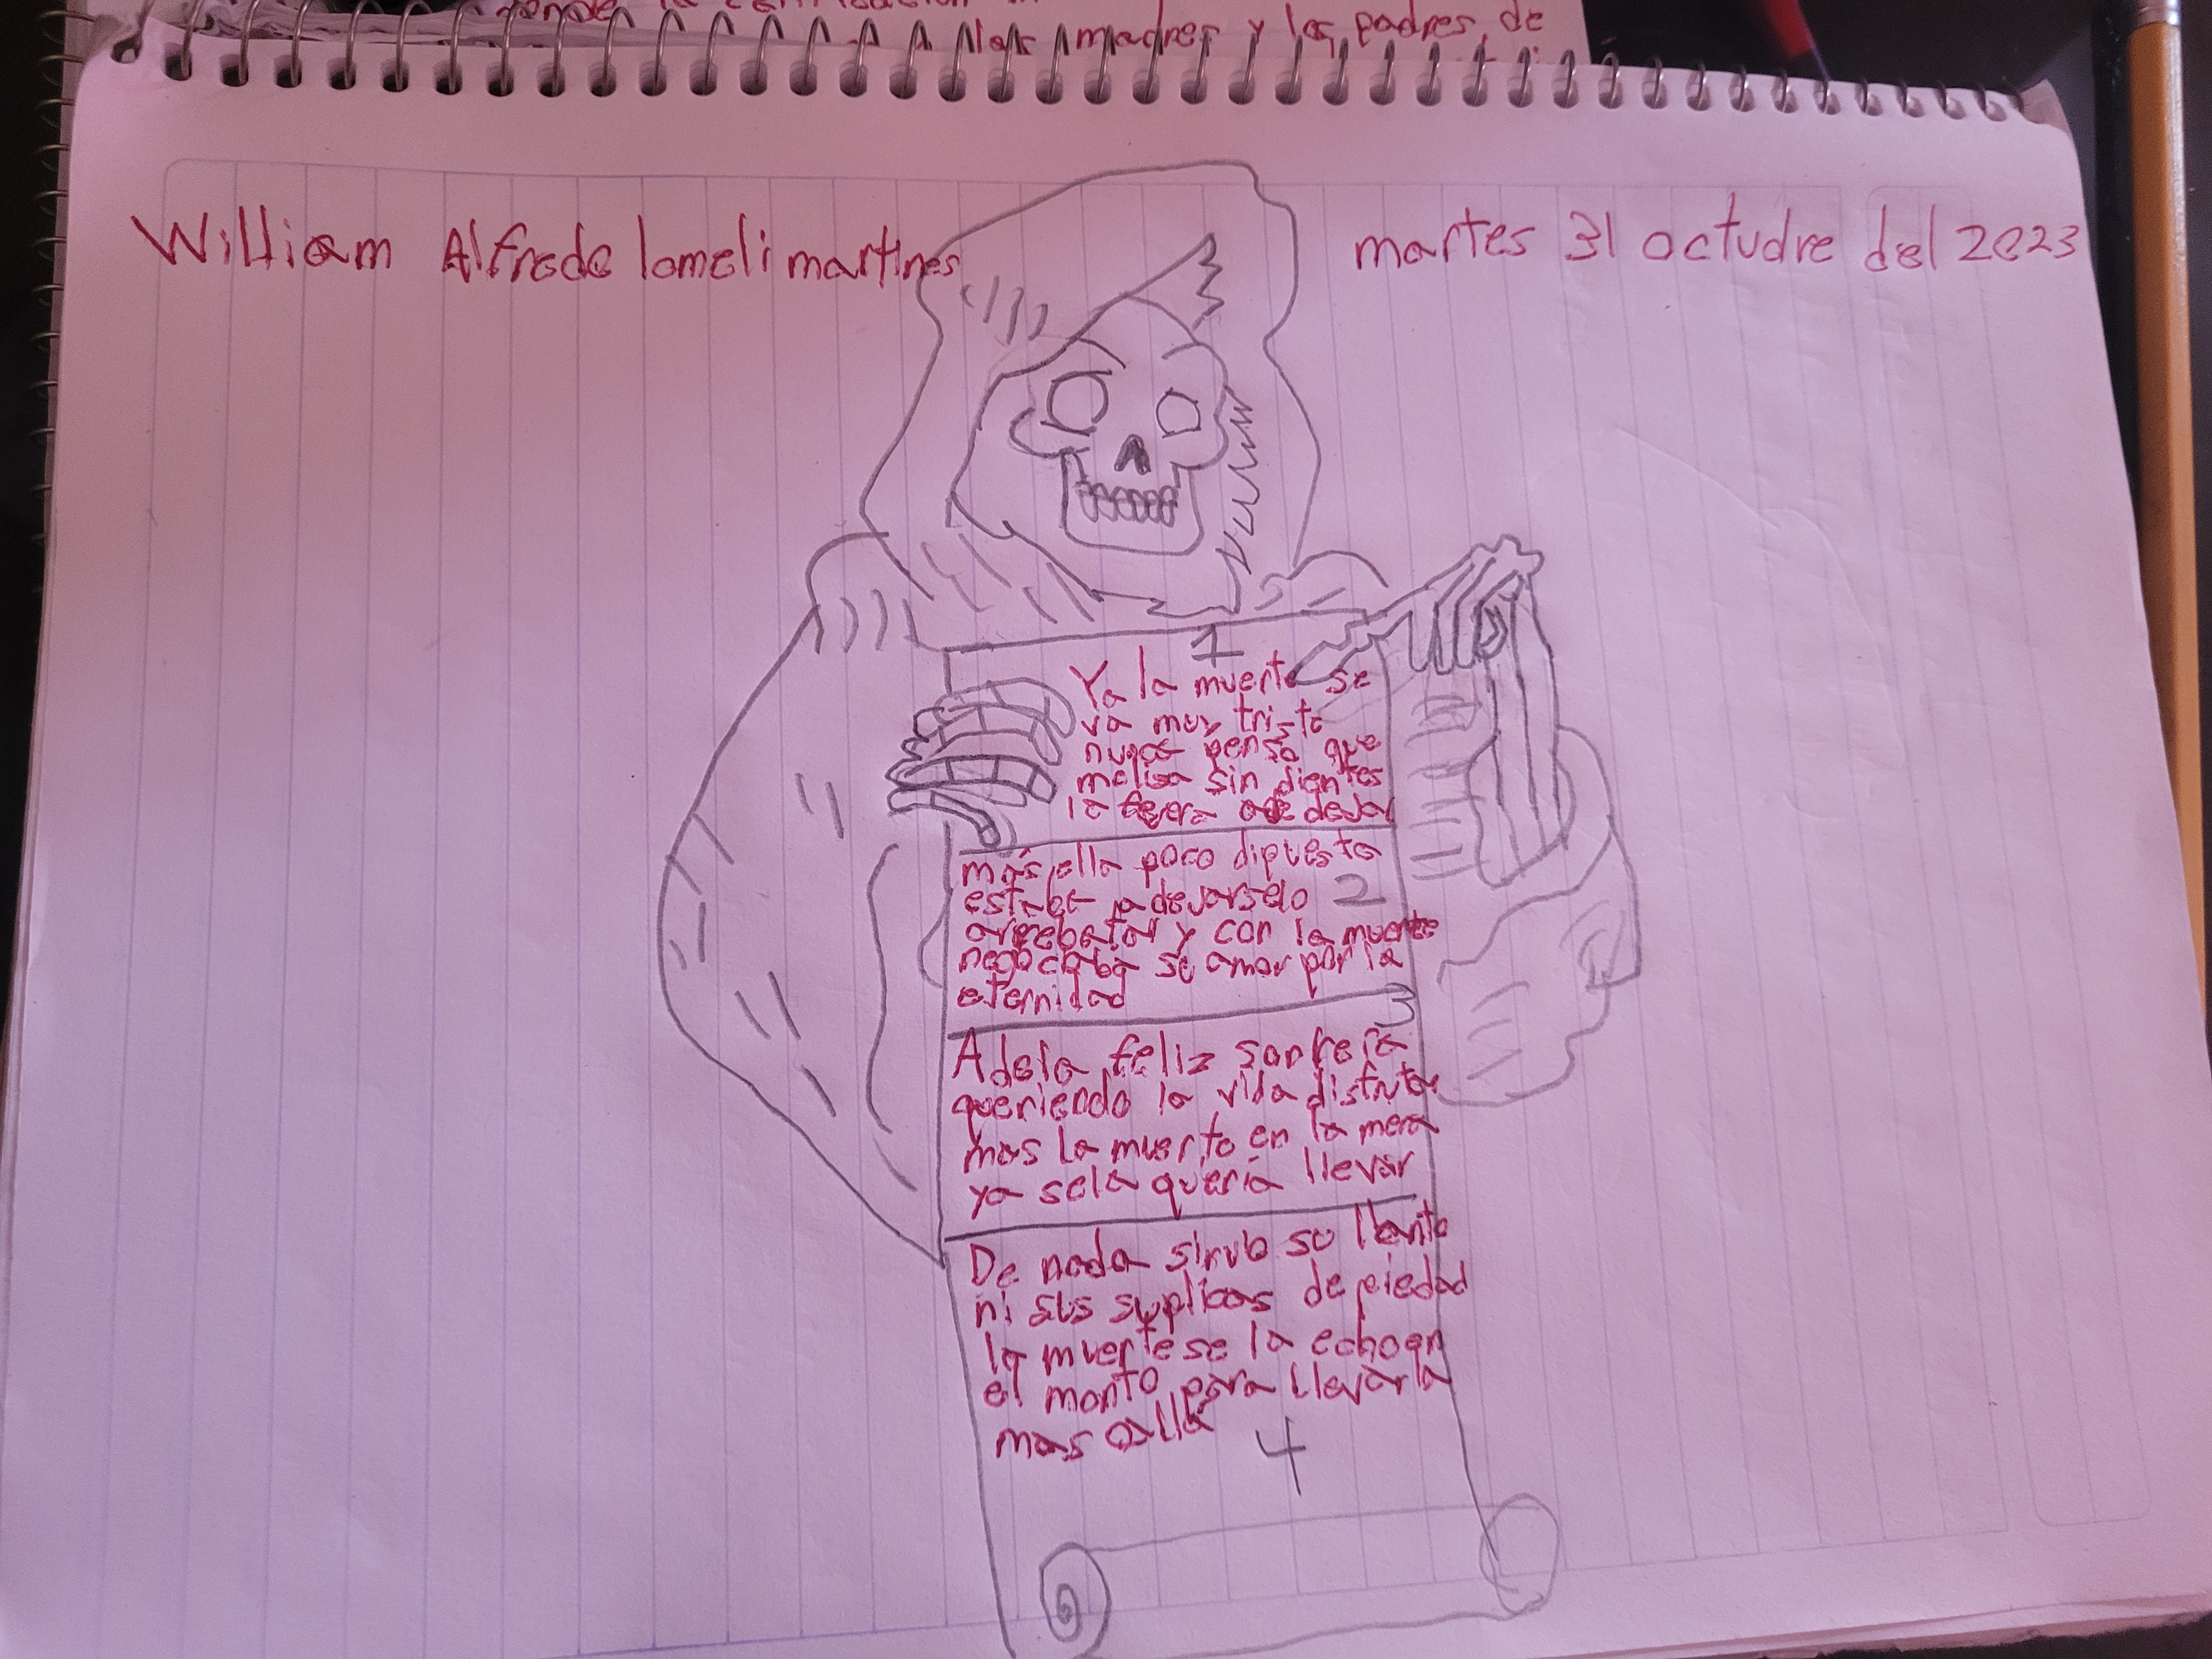 las madres y los padres, de
William Alfredo lomeli martines
martes 31 octudre del 2023
1
Ya la muerte se
va muy triste
nunca penso que
melisa sin dientes
la fuera a dejar
más ella poco dipuesta
estaba a dejarselo 2
arrebatar y con la muerte
negociaba su amor por la
eternidad
3
Adela feliz sonreía
queriendo la vida disfrutar
mas la muerte en la mera
ya sela quería llevar
De nada sirvio su llanto
ni sus suplicas de piedad
la muerte se la echo en
el manto para llevarla
mas alla
4